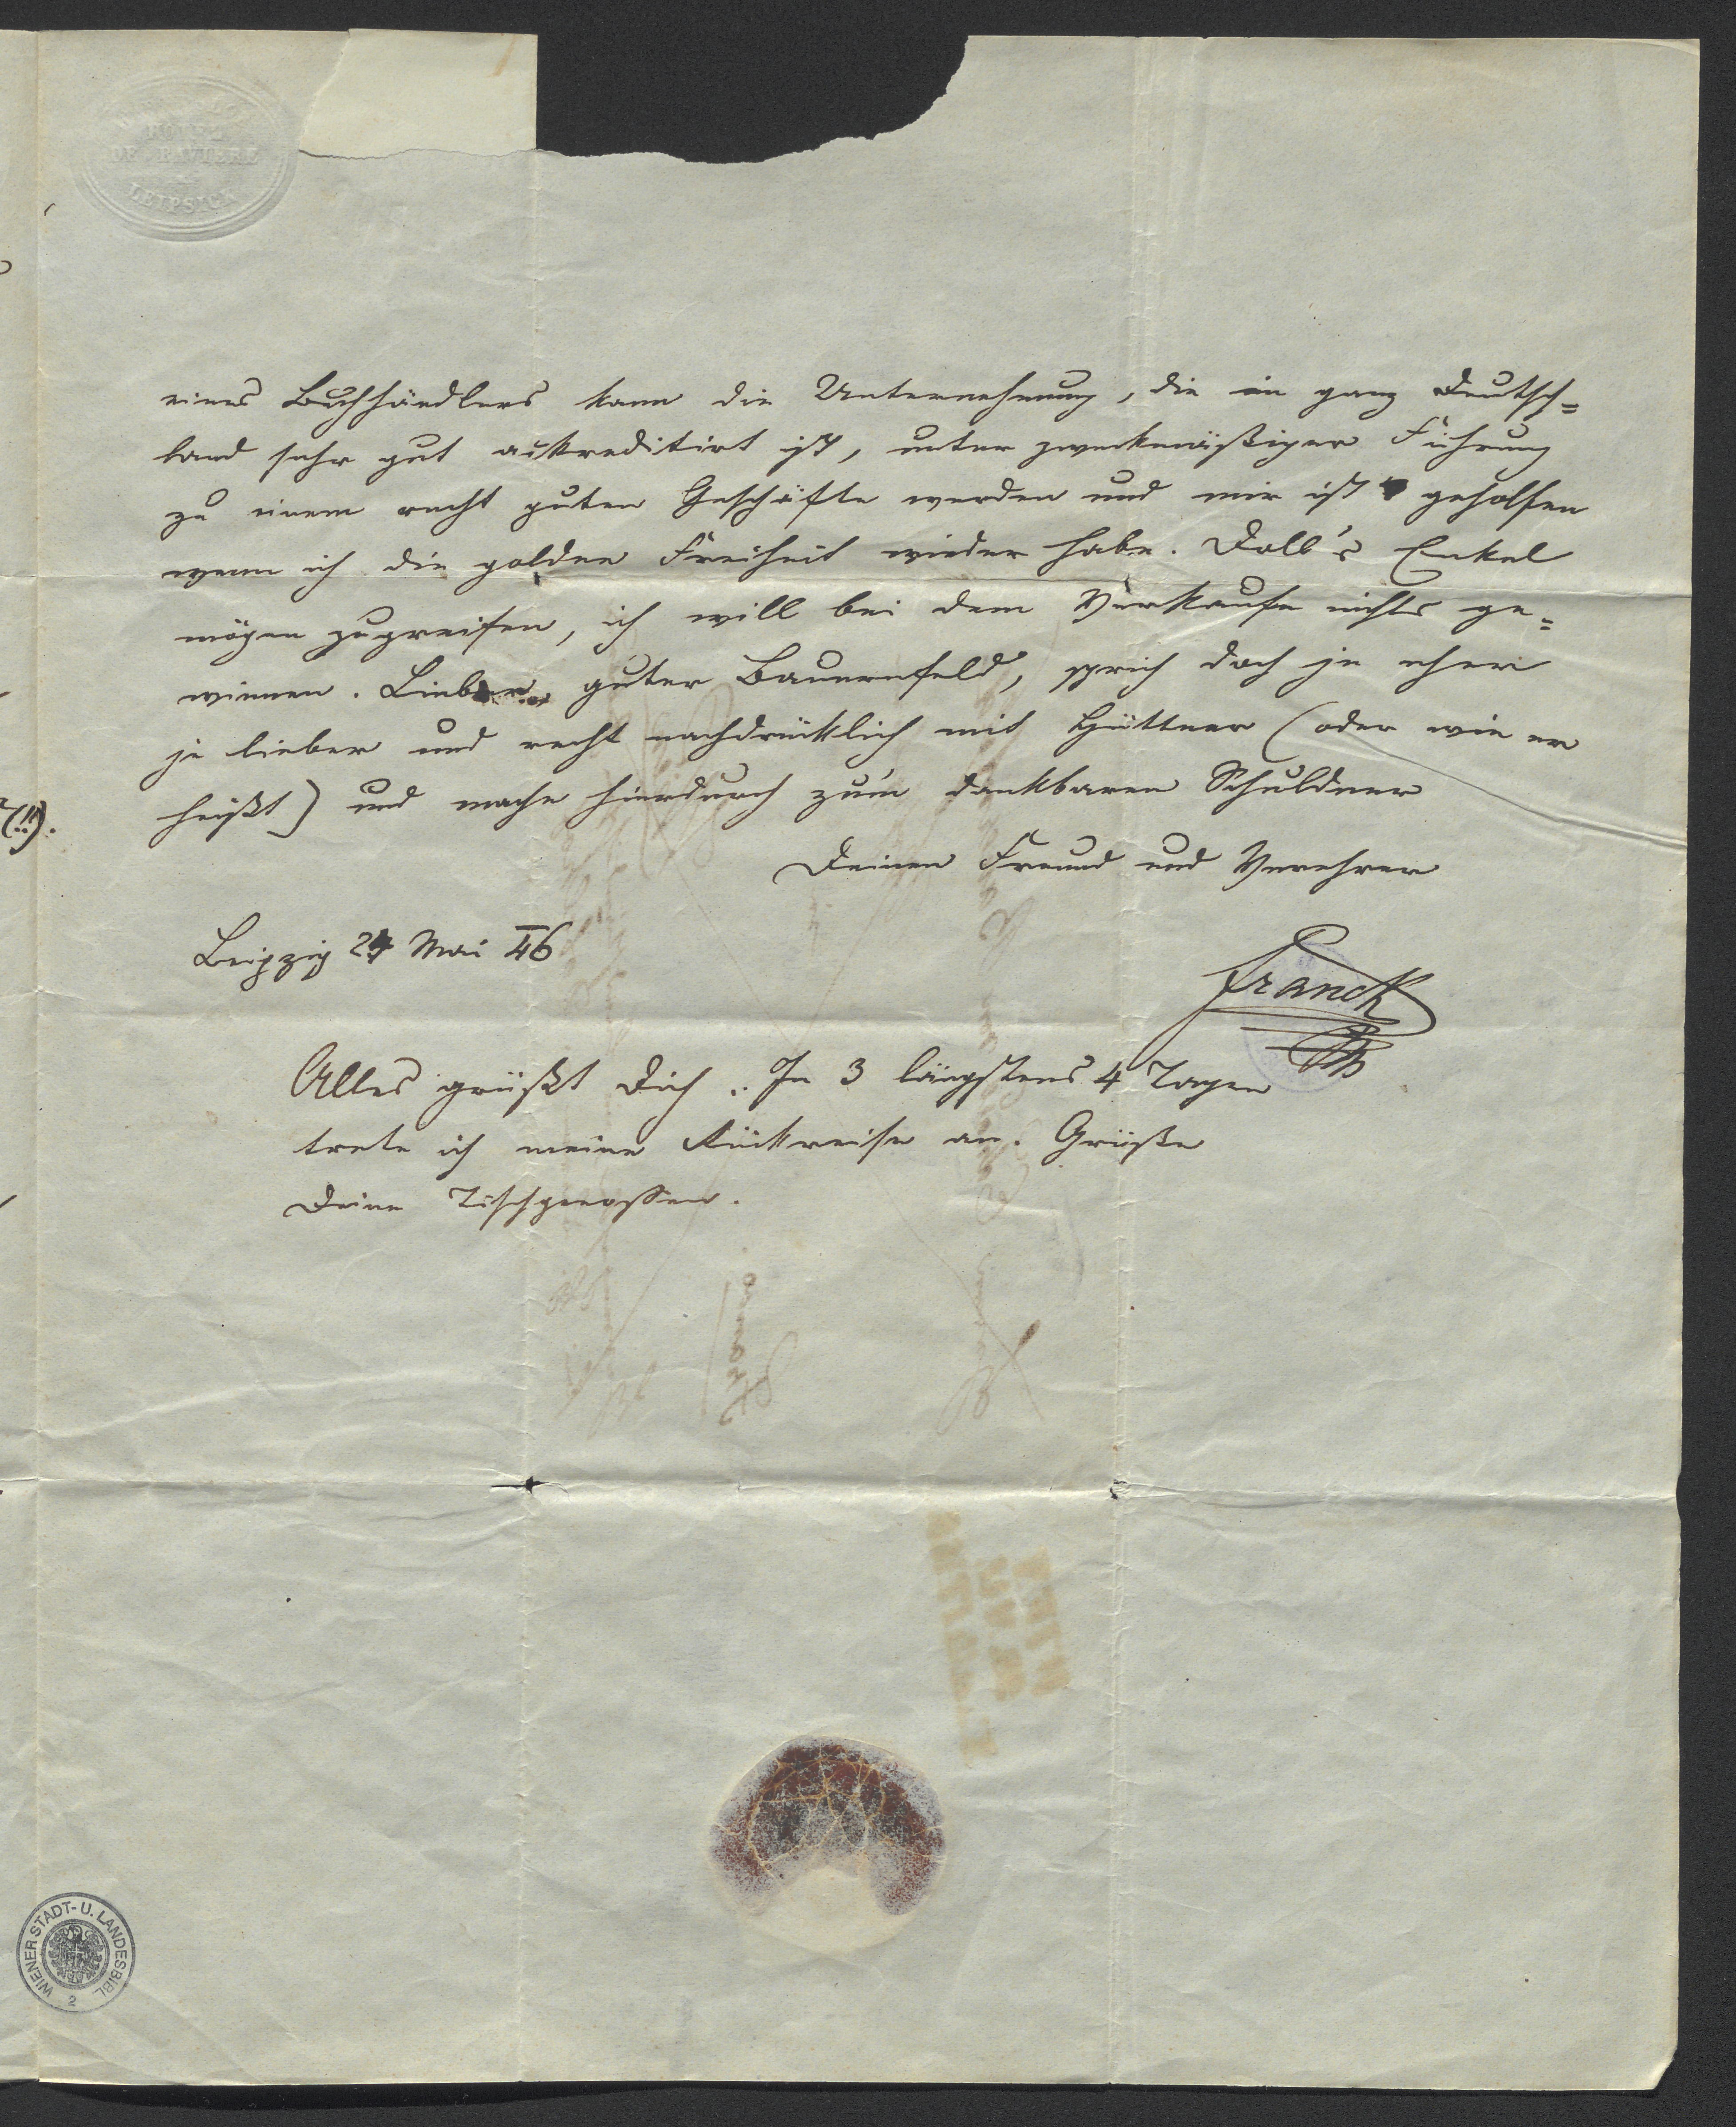 HOTEL
DE BAVIERE
LEIPSICK
eines Buchhändlers kann die Unternehmung, die in ganz Deutsch=
land sehr gut akkreditirt ist, unter zweckmäßiger Führung
zu einem recht guten Geschäfte werden und mir ist geholfen
wenn ich die goldne Freiheit wieder habe. Doll's Enkel
mögen zugreifen, ich will bei dem Verkaufe nichts ge=
winnen. Lieber guter Bauernfeld, sprich doch je eher
je lieber und recht nachdrücklich mit Hüttner (oder wie er
heißt) und mache hierdurch zum dankbaren Schuldner
Deinen Freund und Verehrer
Leipzig 24 Mai 46
Franck
Alles grüßt Dich. In 3 längstens 4 Tagen
trete ich meine Rückreise an. Grüße
Deine Tischgenossen.
WIENER STADT- U. LANDESBIBL.
2